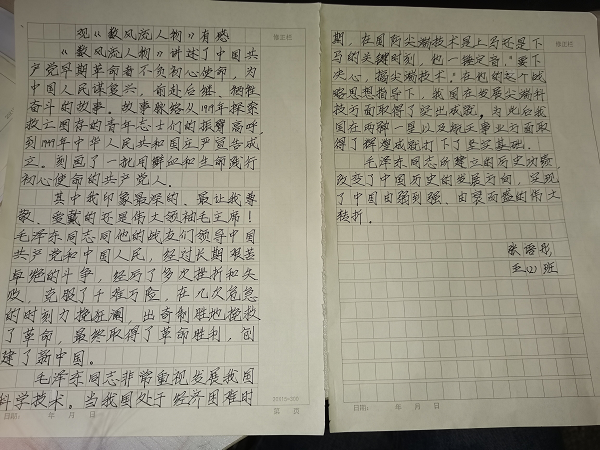 观《数风流人物》有感
修正栏
《数风流人物》讲述了中国共
产党早期革命者不负初心使命，为
中国人民谋复兴，前赴后继、牺牲
奋斗的故事。故事脉络从1919年探索
救亡图存的青年志士们的振臂高呼，
到1949年中华人民共和国庄严宣告成
立。刻画了一批用鲜血和生命践行
初心使命的共产党人。
其中我印象最深的、最让我尊
敬、爱戴的还是伟大领袖毛主席！
毛泽东同志同他的战友们领导中国
共产党和中国人民，经过长期艰苦
卓绝的斗争，经历了多次挫折和失
败，克服了千难万险，在几次危急
的时刻力挽狂澜，出奇制胜地挽救
了革命，最终取得了革命胜利，创
建了新中国。
毛泽东同志非常重视发展我国
科学技术。当我国处于经济困难时
20X15=300
日期： 年 月 日 第 页
修正栏
期，在国防尖端技术是上马还是下
马的关键时刻，他一锤定音，要下
决心，搞尖端技术。在他的这个战
略思想指导下，我国在发展尖端科
技方面取得了突出成就，为此后我
国在两弹一星以及航天事业方面取
得了辉煌成就打下了坚实基础。
毛泽东同志所建立的历史功绩，
改变了中国历史的发展方向，实现
了中国由弱到强、由衰而盛的伟大
转折。
张语彤
五(2)班
日期： 年 月 日